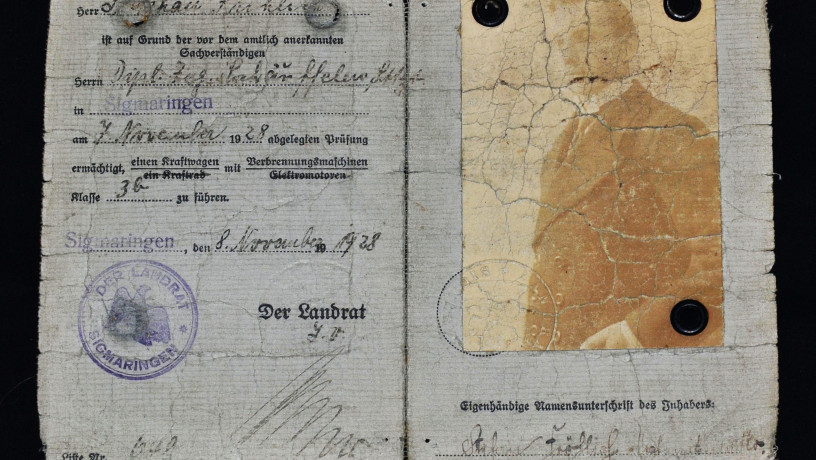 Herr
ist auf Grund der vor dem amtlich anerkannten
Sachverständigen
Herrn Dipl. Ing.
in Sigmaringen
am 7 November 1928 abgelegten Prüfung
ermächtigt, einen Kraftwagen mit Verbrennungsmaschinen
ein Kraftrad Elektromotoren
Klasse 3b zu führen.
Sigmaringen, den 8. November 1928
DER LANDRAT
SIGMARINGEN
Der Landrat
J. V.
Liste Nr.
Eigenhändige Namensunterschrift des Inhabers:
Fröhlich